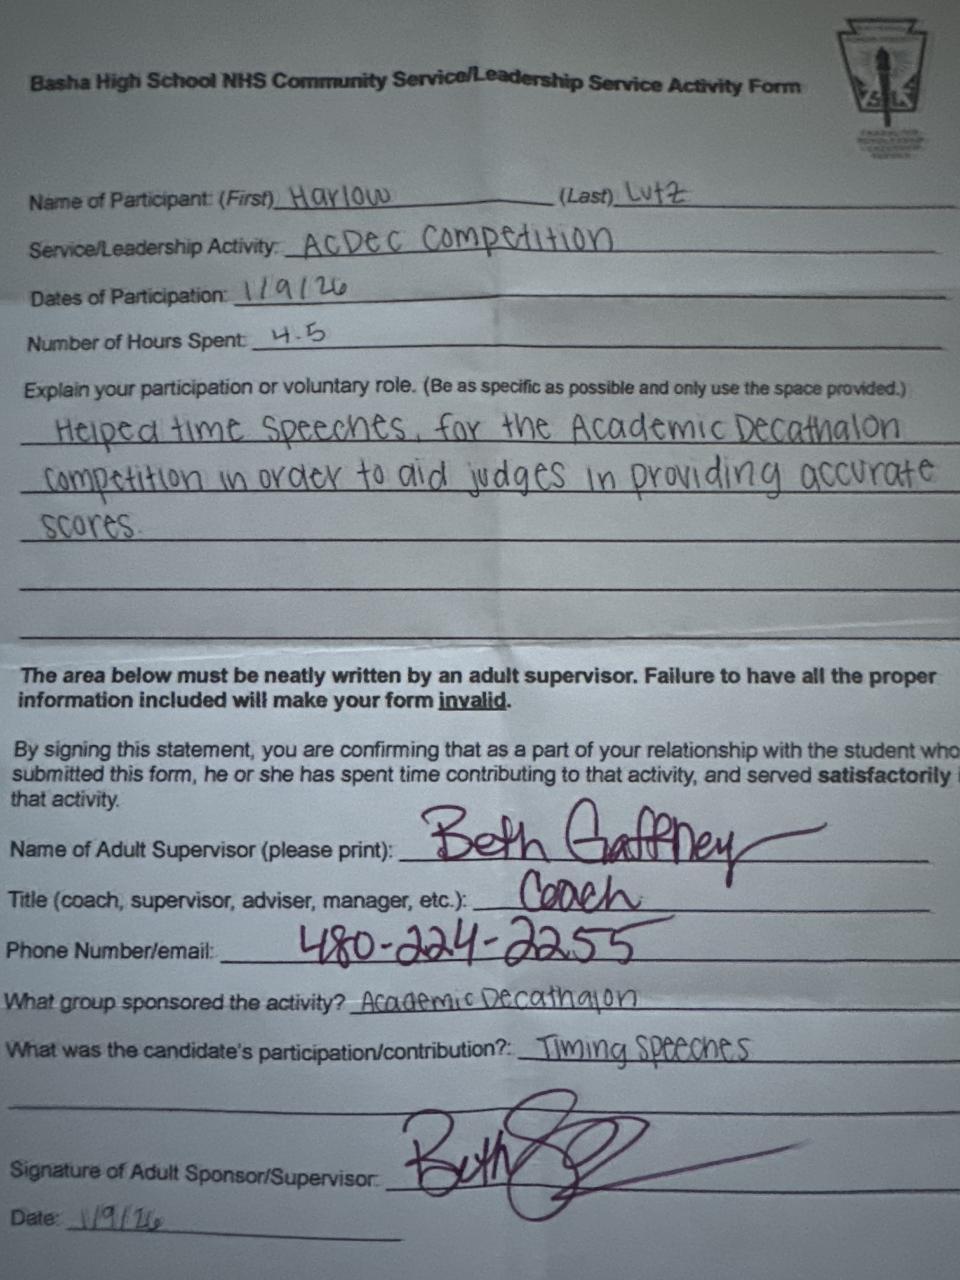 Basha High School NHS Community Service/Leadership Service Activity Form
Name of Participant: (First) Harlow (Last) Lutz
Service/Leadership Activity: ACDEC Competition
Dates of Participation: 1/9/26
Number of Hours Spent: 4.5
Explain your participation or voluntary role. (Be as specific as possible and only use the space provided.)
Helped time speeches, for the Academic Decathalon
competition in order to aid judges in providing accurate
scores.
The area below must be neatly written by an adult supervisor. Failure to have all the proper
information included will make your form invalid.
By signing this statement, you are confirming that as a part of your relationship with the student who
submitted this form, he or she has spent time contributing to that activity, and served satisfactorily
that activity.
Name of Adult Supervisor (please print): Beth Gaffney
Title (coach, supervisor, adviser, manager, etc.): Coach
Phone Number/email: 480-224-2255
What group sponsored the activity? Academic Decathalon
What was the candidate's participation/contribution?: Timing speeches
Signature of Adult Sponsor/Supervisor: Beth
Date: 1/9/26